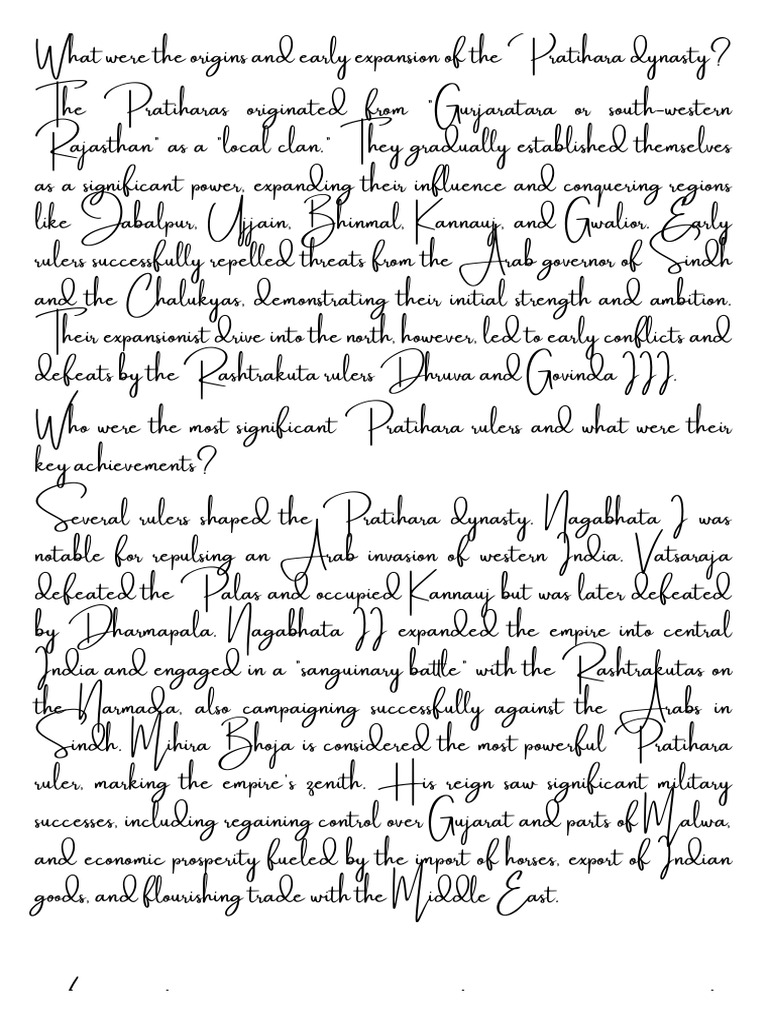 What were the origins and early expansion of the Pratihara dynasty?
The Pratiharas originated from "Gurjaratara or south-western
Rajasthan" as a "local clan." They gradually established themselves
as a significant power, expanding their influence and conquering regions
like Jabalpur, Ujjain, Bhinmal, Kannauj, and Gwalior. Early
rulers successfully repelled threats from the Arab governor of Sindh
and the Chalukyas, demonstrating their initial strength and ambition.
Their expansionist drive into the north, however, led to early conflicts and
defeats by the Rashtrakuta rulers Dhruva and Govinda III.
Who were the most significant Pratihara rulers and what were their
key achievements?
Several rulers shaped the Pratihara dynasty. Nagabhata I was
notable for repulsing an Arab invasion of western India. Vatsaraja
defeated the Palas and occupied Kannauj but was later defeated
by Dharmapala. Nagabhata II expanded the empire into central
India and engaged in a "sanguinary battle" with the Rashtrakutas on
the Narmada, also campaigning successfully against the Arabs in
Sindh. Mihira Bhoja is considered the most powerful Pratihara
ruler, marking the empire's zenith. His reign saw significant military
successes, including regaining control over Gujarat and parts of Malwa,
and economic prosperity fueled by the import of horses, export of Indian
goods, and flourishing trade with the Middle East.